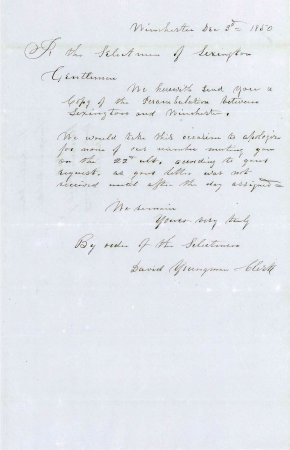 Winchester Dec 3d 1850
To the Selectmen of Lexington
Gentlemen
We herewith send you a
Copy of the Perambulation between
Lexington and Winchester.
We would take this occasion to apologise
for none of our number meeting you
on the 22d ult. according to your
request, as your letter was not
received until after the day assigned
We remain
Yours very truly
By order of the Selectmen
David Youngman Clerk